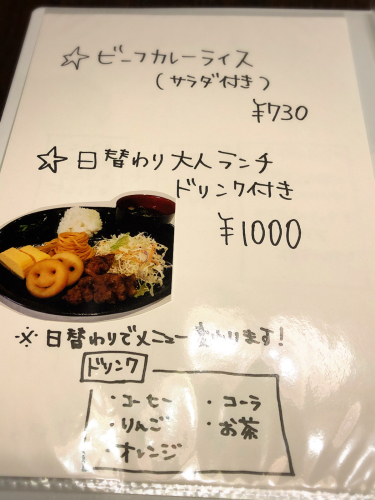 ☆ ビーフカレーライス
(サラダ付き)
¥730
☆ 日替わり大人ランチ
ドリンク付き
¥1000
※ 日替わりでメニュー変わります!
ドリンク
・コーヒー ・コーラ
・りんご ・お茶
・オレンジ